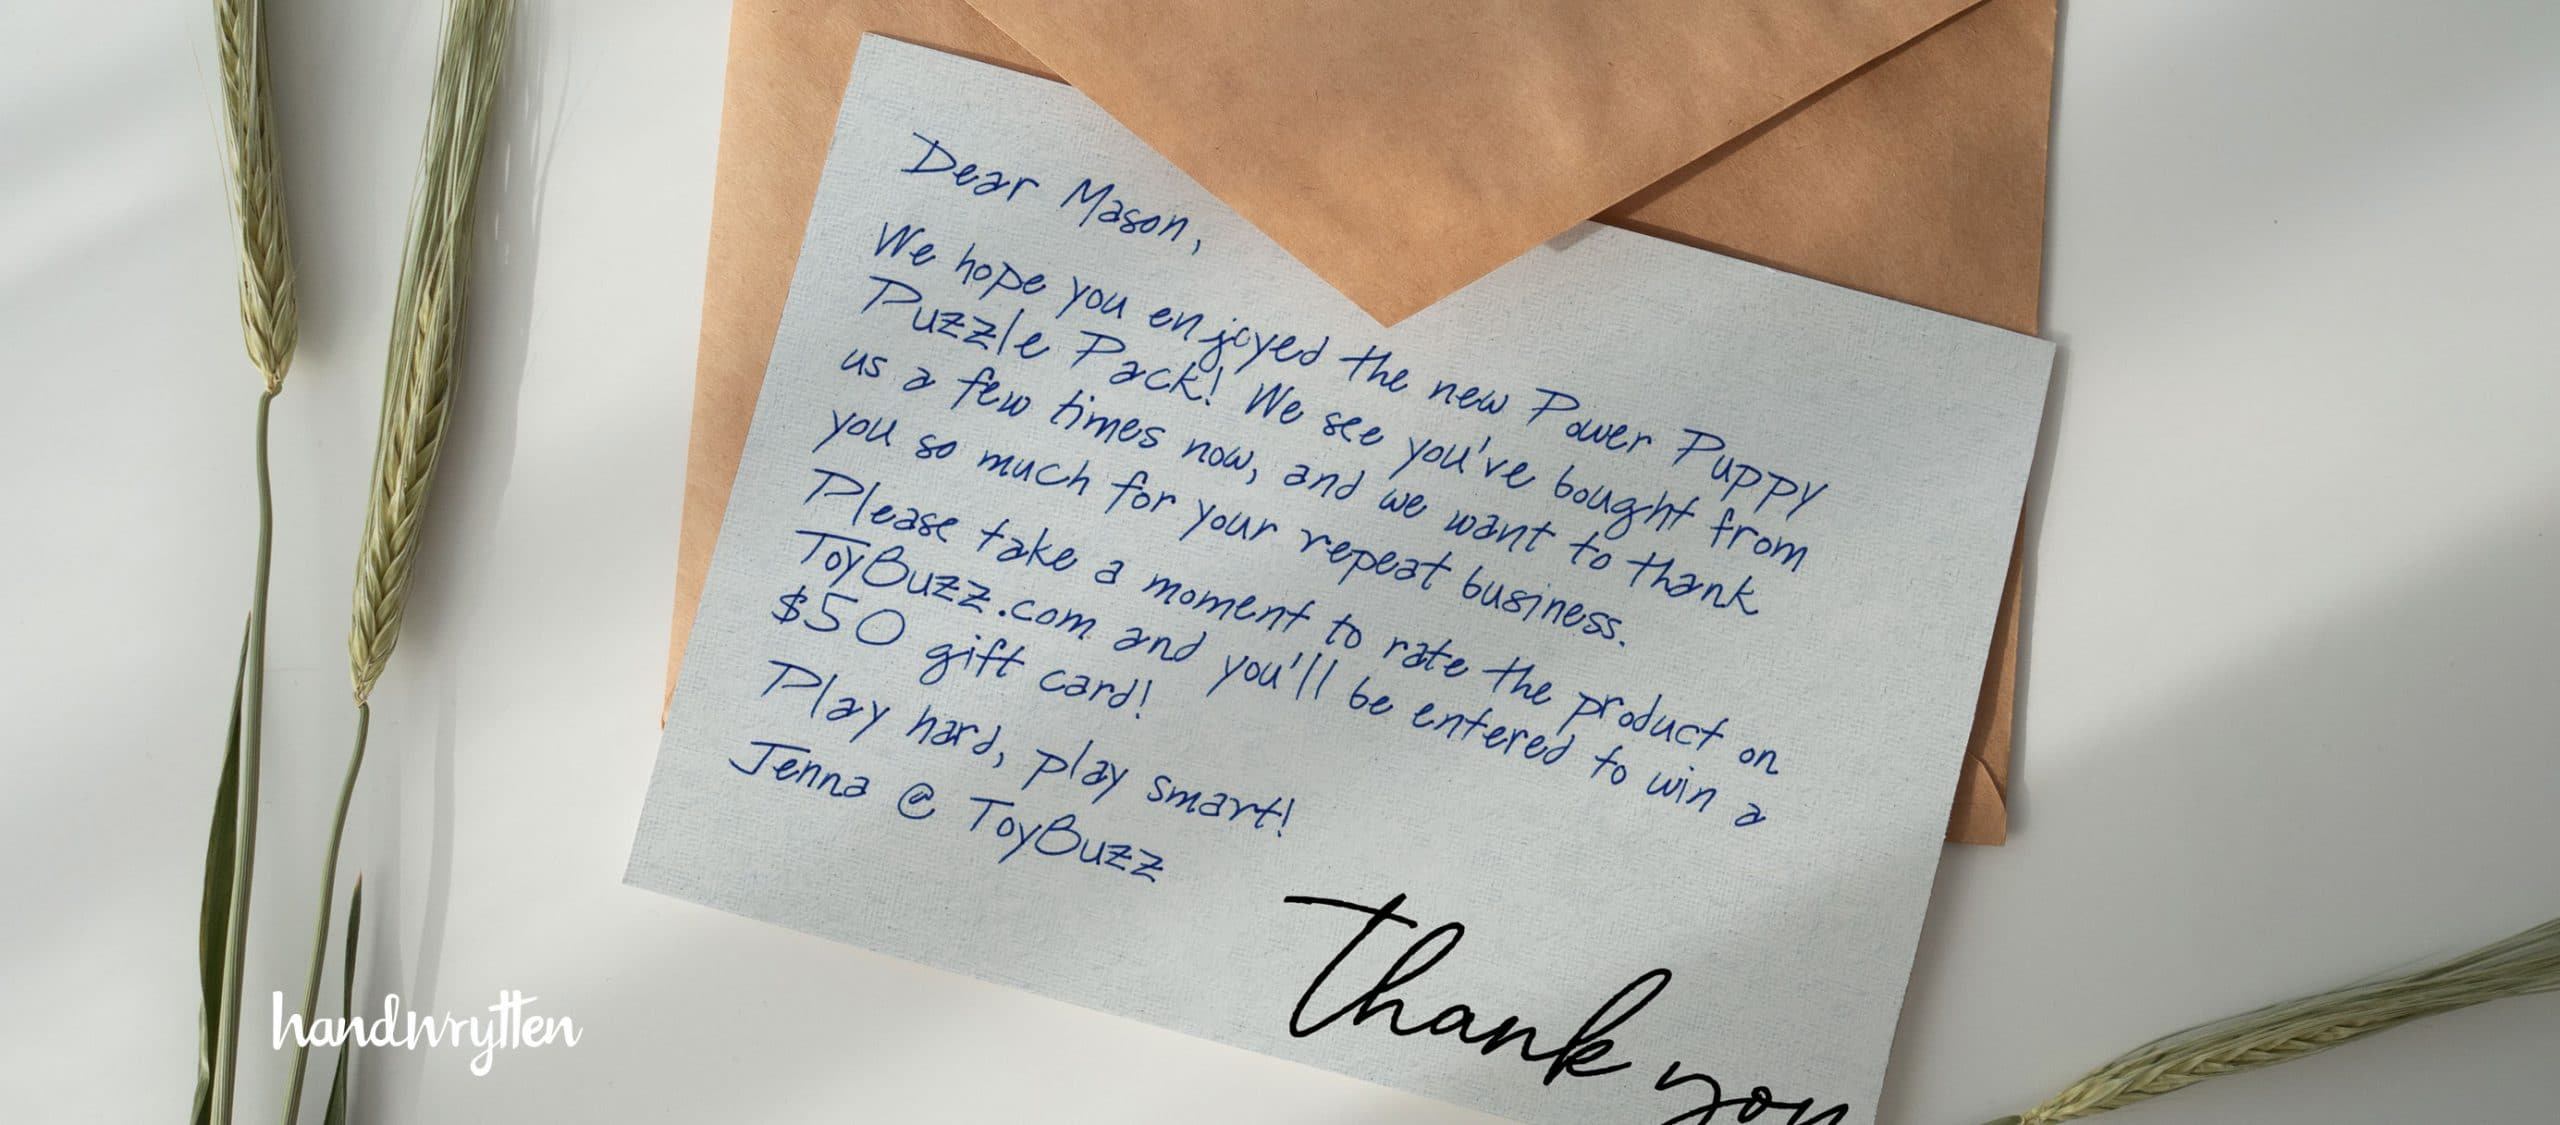 Dear Mason,
We hope you enjoyed the new Power Puppy
Puzzle Pack! We see you've bought from
us a few times now, and we want to thank
you so much for your repeat business.
Please take a moment to rate the product on
ToyBuzz.com and you'll be entered to win a
$50 gift card!
Play hard, play smart!
Jenna @ ToyBuzz
thank you
handwrytten